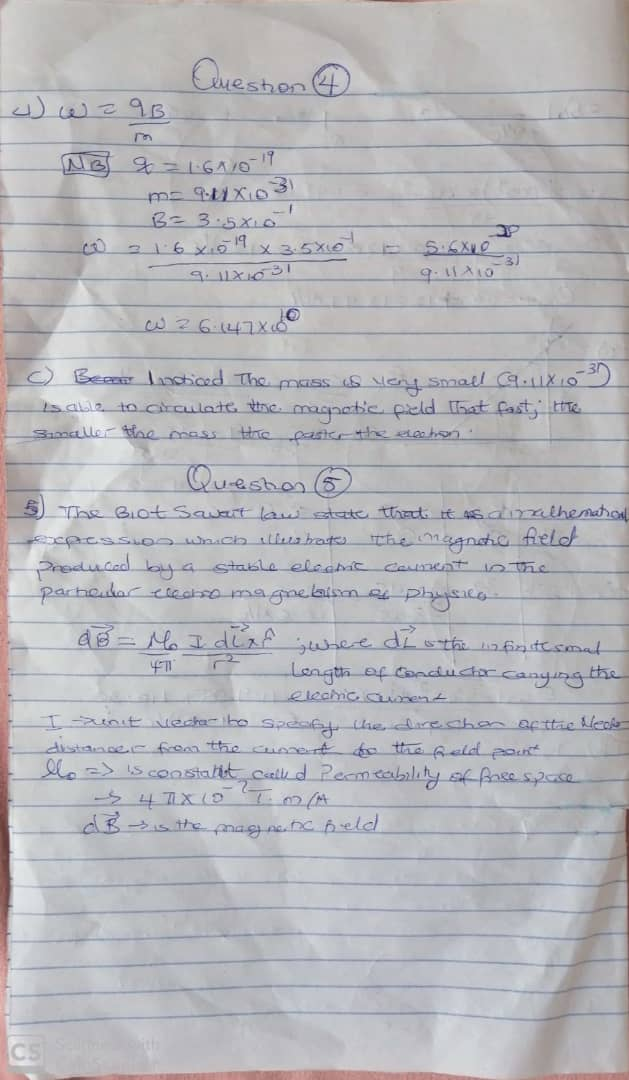 Question ④
4) ω = qB
m
NB q = 1.6x10^-19
m = 9.11 x10^-31
B = 3.5x10^-1
ω = 1.6 x10^19 x 3.5x10^-1 = 5.6x10^-20
9.11x10^-31 9.11x10^-31
ω = 6.147x10^10
c) I noticed The mass is very small (9.11x10^-31)
is able to circulate the magnetic field That fast; the
smaller the mass the faster the electron.
Question ⑤
5) The Biot Savart law state that it is a mathematical
expression which illustrates the magnetic field
produced by a stable electric current in the
particular electro magnetism of physics.
dB = μ₀ I dL x r̂ ; where dL is the infinitesmal
4π r²
Length of conductor carrying the
electric current
I → unit vector to specify the direction of the
distance r from the current to the field point
μ₀ => is constant called Permeability of free space
→ 4π x10^-7 T. m/A
dB → is the magnetic field
CS Scanned with